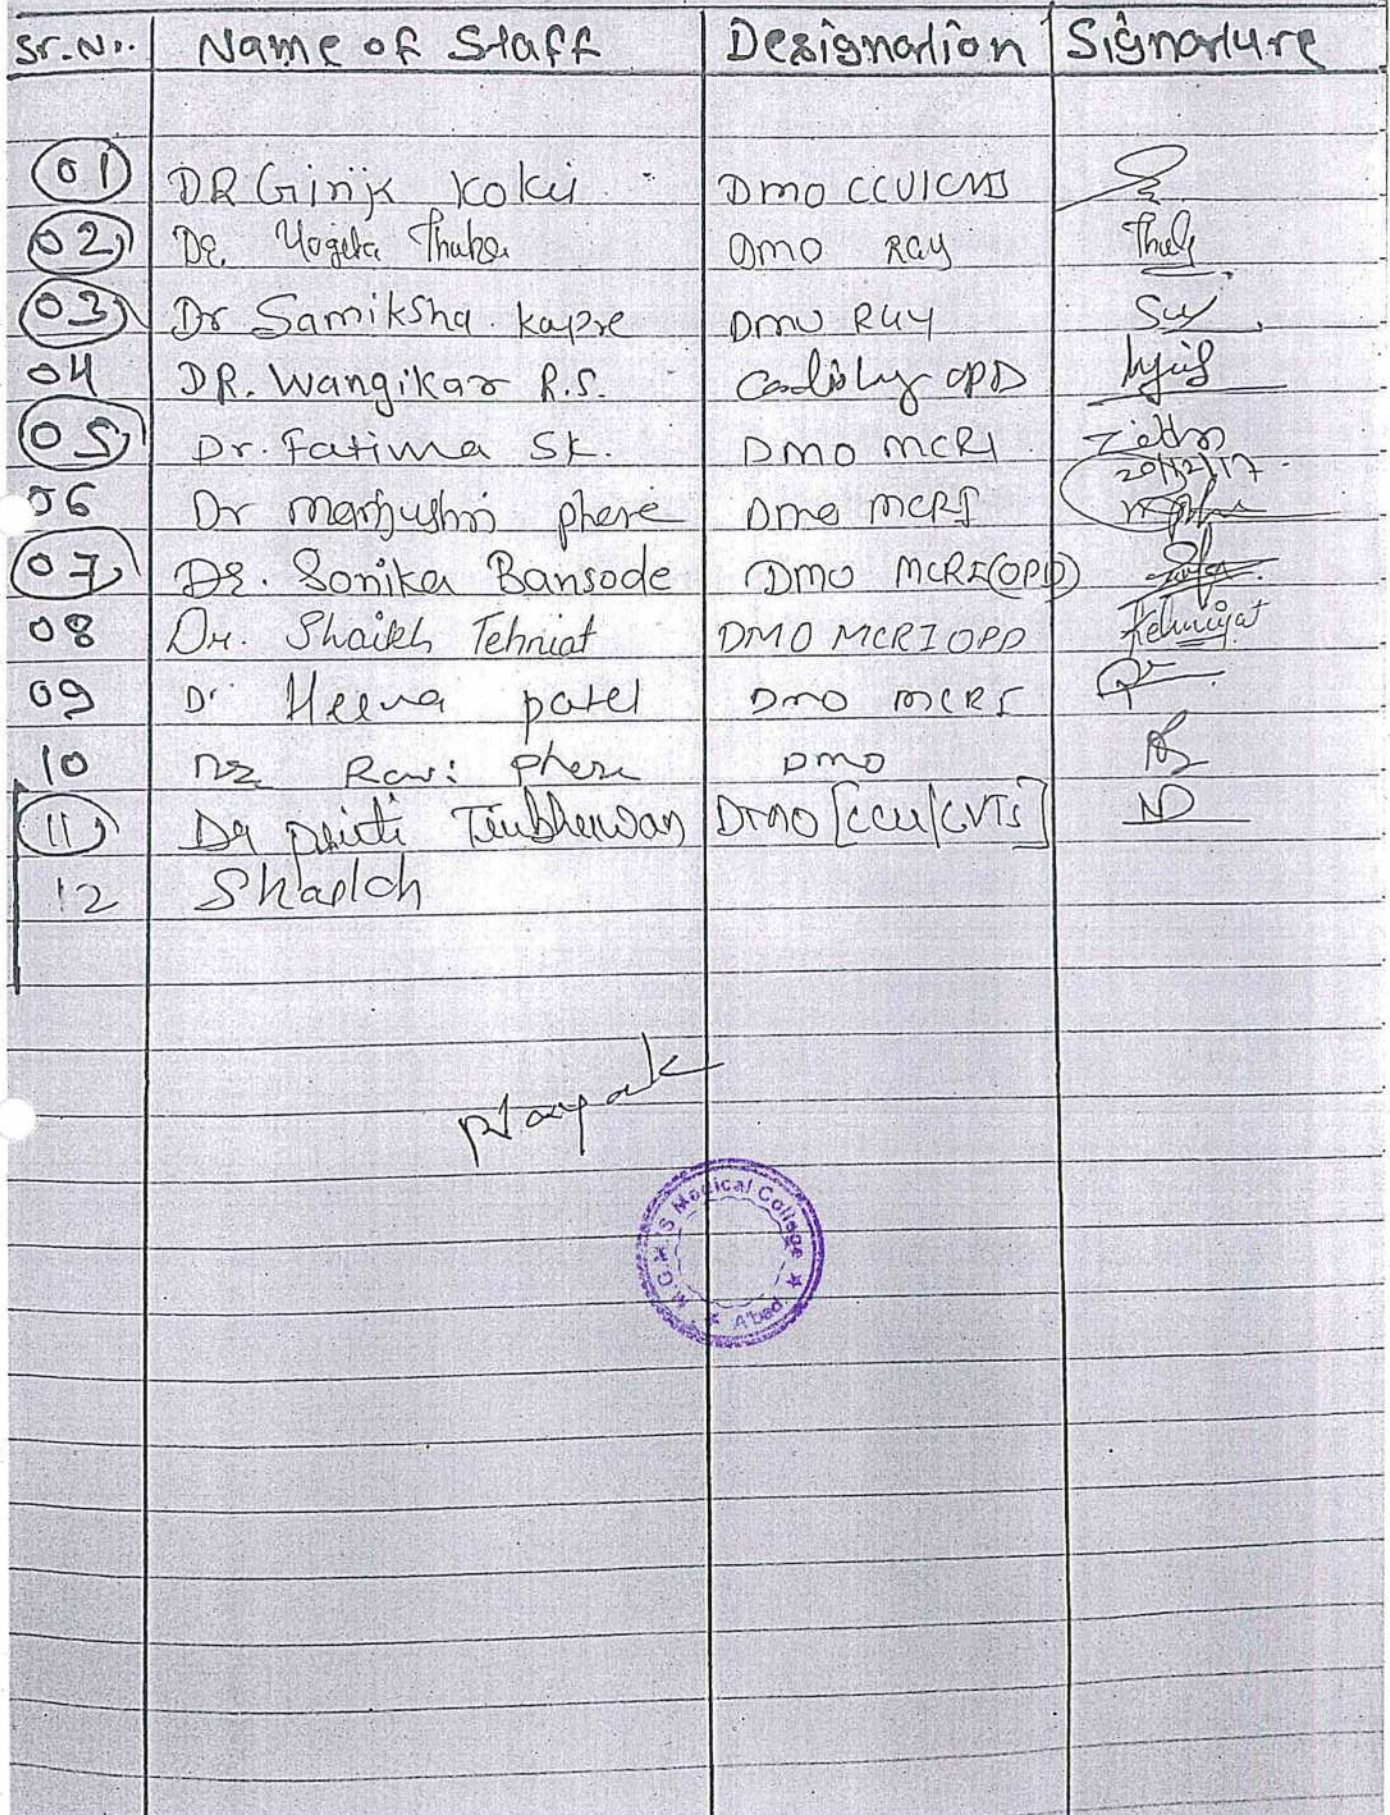 Sr.No. Name of Staff Designation Signature
01 DR Girija DMO
02 Dr. Yogita Thube DMO
03 Dr Samiksha kapre DMO
04 DR. Wangikar R.S. OPD
05 Dr. Fatima Sk. DMO MCRI
20/12/17
06 Dr manjushri phere Dmo MCRI
07 Dr. Sonika Bansode DMO MCRI(OPD)
08 Dr. Shaikh Tehniat DMO MCRI OPD Tehniyat
09 Dr Heena patel DMO MCRI
10 Dr Ravi phere DMO
11 Dr DMO [CCU/CVTS]
12
M.G.M.'S Medical College
A'bad.